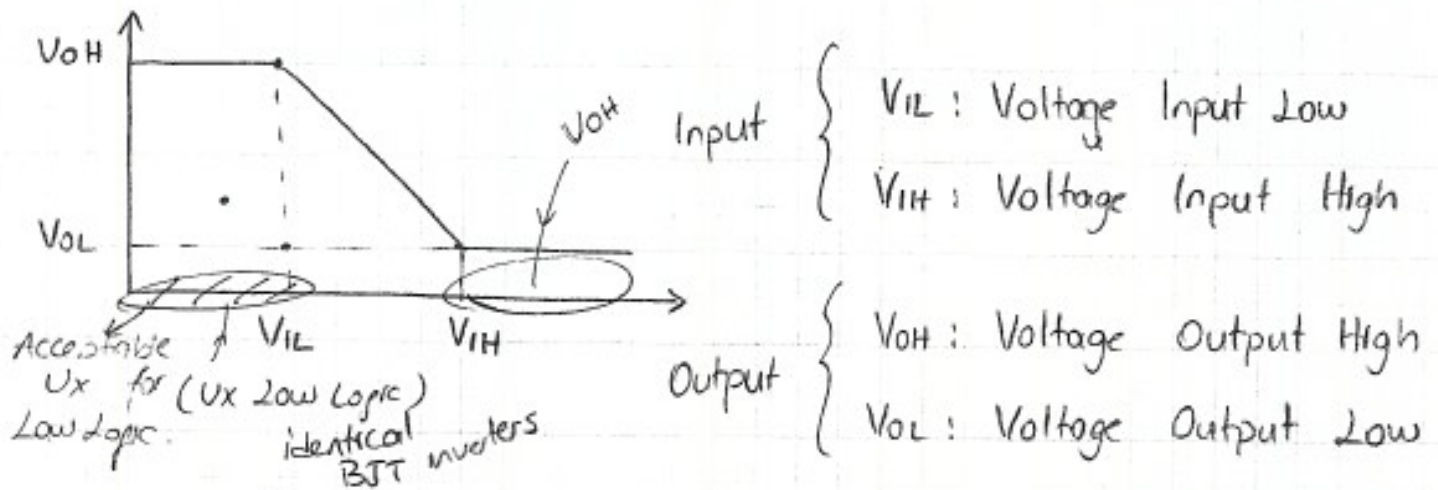 VOH
VOL
VOH
VIL
VIH
Acceptable
Ux for
Low Logic.
(Ux Low Logic)
identical
BJT inverters
Input
VIL : Voltage Input Low
VIH : Voltage Input High
Output
VOH : Voltage Output High
VOL : Voltage Output Low